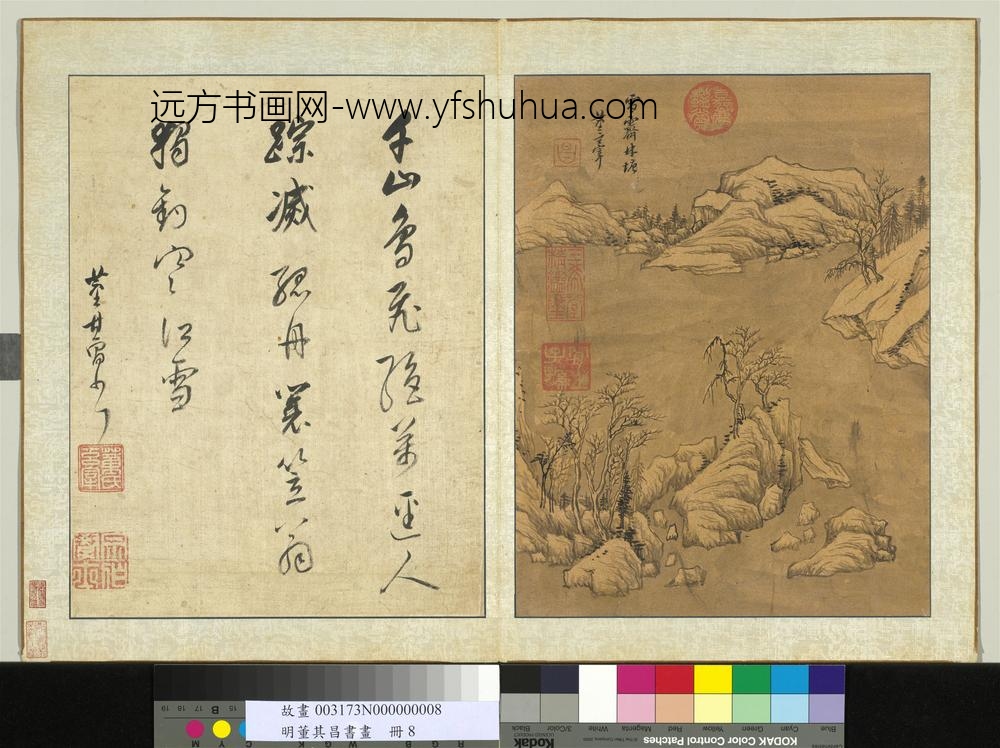 远方书画网-www.yfshuhua.com
千山鳥飛絕萬逕人
踪滅孤舟蓑笠翁
獨釣寒江雪
董其昌書
三希堂精鑑璽
宜子孫
故畫 003173N000000008
明董其昌書畫 冊 8
KODAK Color Control Patches
Blue
Cyan
Green
Yellow
Red
Magenta
White
3/Color
Black
Kodak
19
18
17
16
15
B
M
Y
C